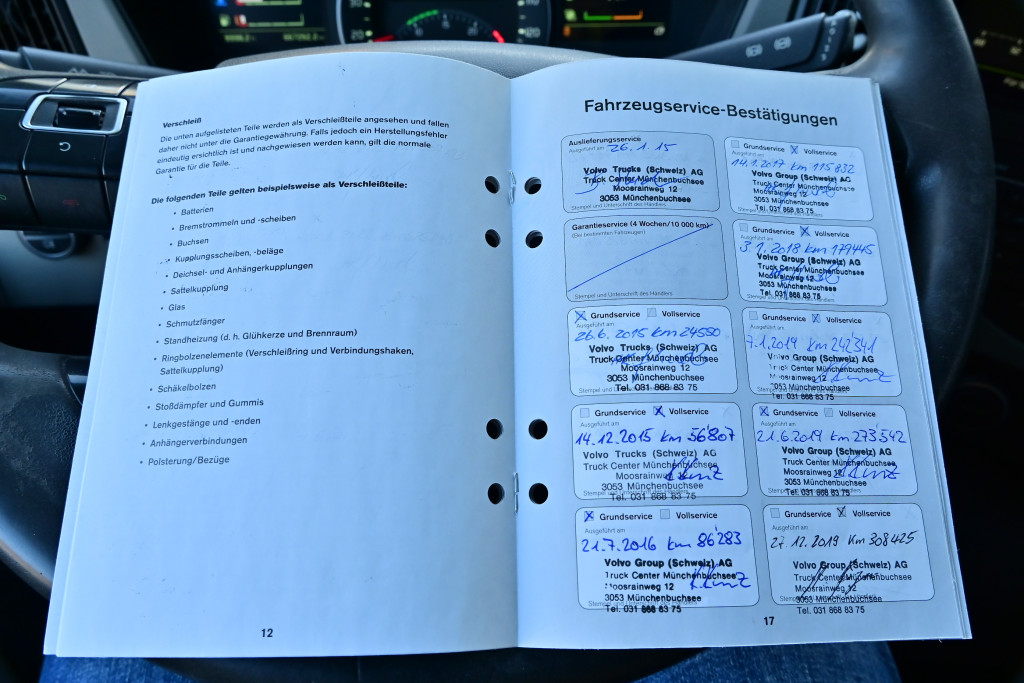 Verschleiß
Die unten aufgelisteten Teile werden als Verschleißteile angesehen und fallen
daher nicht unter die Garantiegewährung. Falls jedoch ein Herstellungsfehler
eindeutig ersichtlich ist und nachgewiesen werden kann, gilt die normale
Garantie für die Teile.
Die folgenden Teile gelten beispielsweise als Verschleißteile:
• Batterien
• Bremstrommeln und -scheiben
• Buchsen
• Kupplungsscheiben, -beläge
• Deichsel- und Anhängerkupplungen
• Sattelkupplung
• Glas
• Schmutzfänger
• Standheizung (d. h. Glühkerze und Brennraum)
• Ringbolzenelemente (Verschleißring und Verbindungshaken,
Sattelkupplung)
• Schäkelbolzen
• Stoßdämpfer und Gummis
• Lenkgestänge und -enden
• Anhängerverbindungen
• Polsterung/Bezüge
12
Fahrzeugservice-Bestätigungen
Auslieferungsservice
Ausgeführt am 26.1.15
Volvo Trucks (Schweiz) AG
Truck Center Münchenbuchsee
Moosrainweg 12
3053 Münchenbuchsee
Stempel und Unterschrift des Händlers
Garantieservice (4 Wochen/10 000 km)
(Bei bestimmten Fahrzeugen)
Stempel und Unterschrift des Händlers
Grundservice Vollservice
Ausgeführt am
26.6.2015 km 24550
Volvo Trucks (Schweiz) AG
Truck Center Münchenbuchsee
Moosrainweg 12
3053 Münchenbuchsee
Tel. 031 868 83 75
Grundservice Vollservice
Ausgeführt am
14.12.2015 km 56'807
Volvo Trucks (Schweiz) AG
Truck Center Münchenbuchsee
Moosrainweg 12
3053 Münchenbuchsee
Tel. 031 868 83 75
Grundservice Vollservice
Ausgeführt am
21.7.2016 km 86'283
Volvo Group (Schweiz) AG
Truck Center Münchenbuchsee
Moosrainweg 12
3053 Münchenbuchsee
Tel. 031 868 83 75
Grundservice Vollservice
Ausgeführt am
14.1.2017 km 115832
Volvo Group (Schweiz) AG
Truck Center Münchenbuchsee
Moosrainweg 12
3053 Münchenbuchsee
Tel. 031 868 83 75
Grundservice Vollservice
3.1.2018 km 179445
Volvo Group (Schweiz) AG
Truck Center Münchenbuchsee
Moosrainweg 12
3053 Münchenbuchsee
Tel. 031 868 83 75
Grundservice Vollservice
Ausgeführt am
7.1.2019 km 242341
Volvo Group (Schweiz) AG
Truck Center Münchenbuchsee
Moosrainweg 12
3053 Münchenbuchsee
Tel. 031 868 83 75
Grundservice Vollservice
Ausgeführt am
21.6.2019 km 273'542
Volvo Group (Schweiz) AG
Truck Center Münchenbuchsee
Moosrainweg 12
3053 Münchenbuchsee
Tel. 031 868 83 75
Grundservice Vollservice
Ausgeführt am
27.12.2019 km 308425
Volvo Group (Schweiz) AG
Truck Center Münchenbuchsee
Moosrainweg 12
3053 Münchenbuchsee
Tel. 031 868 83 75
17